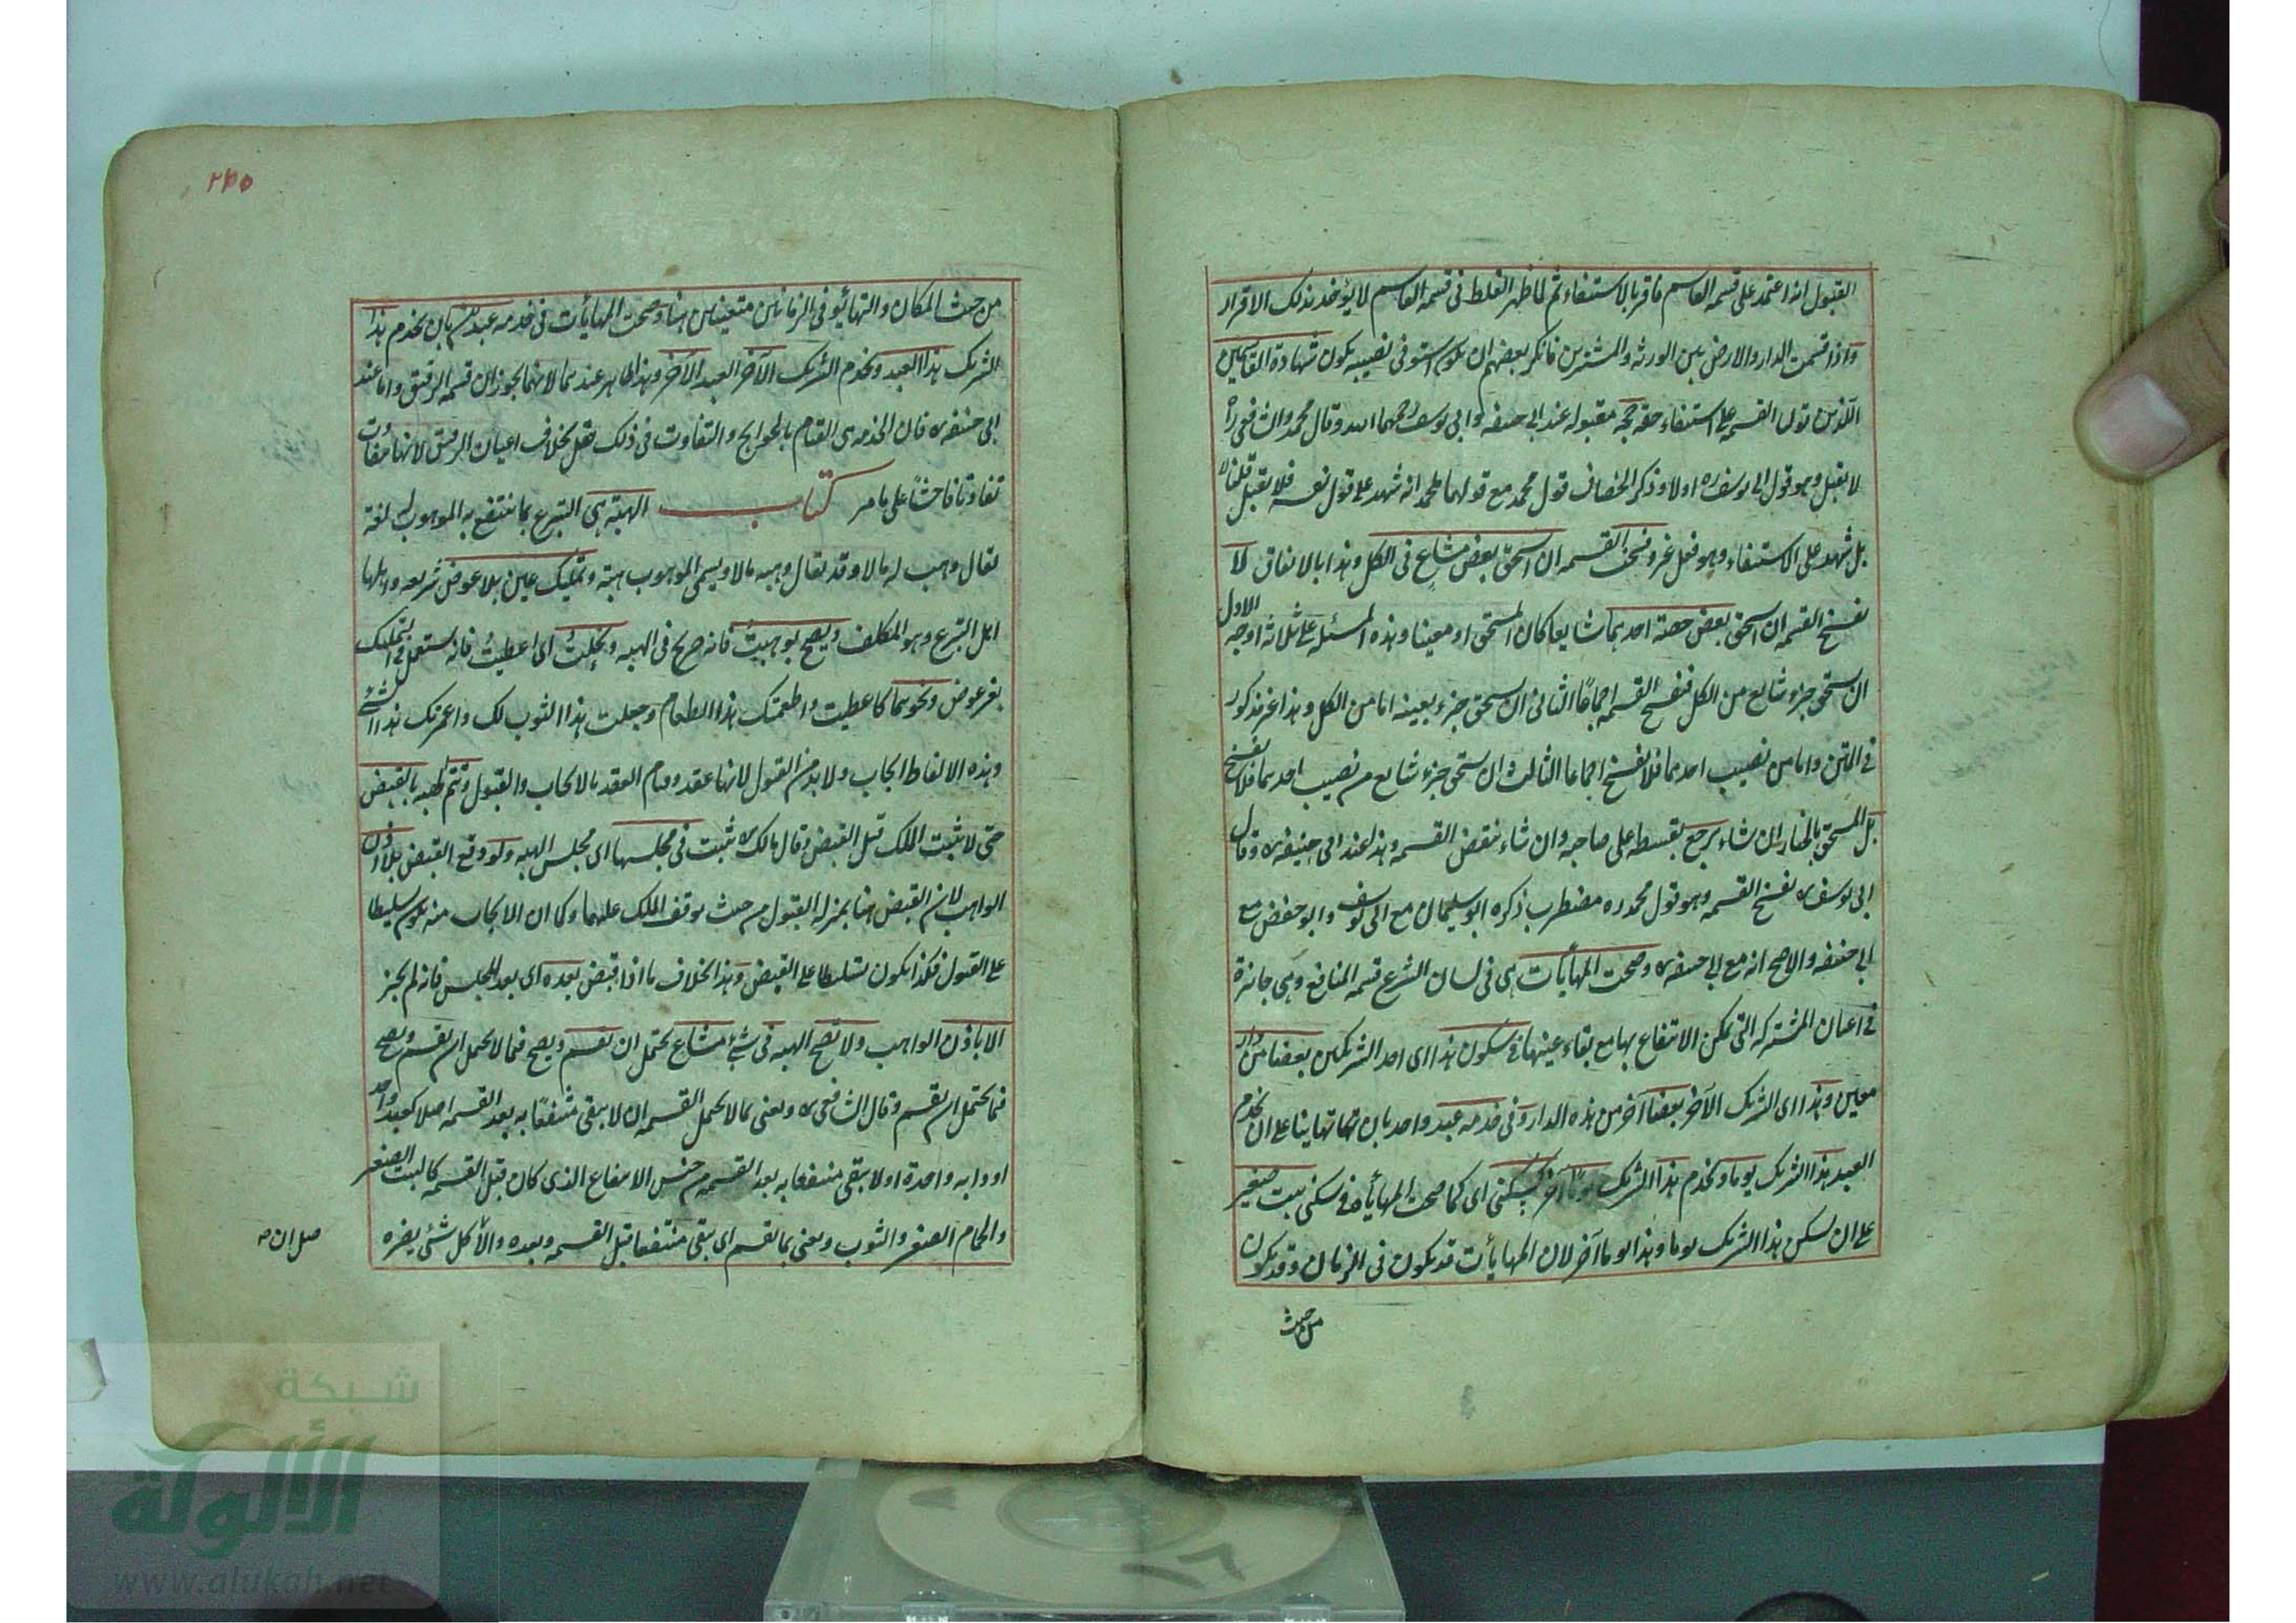 القبول انه اعتمد على قسمه القاسم فاقر بالاستيفاء ثم لما ظهر الغلط فى قسمه القاسم لا يؤخذ بذلك الاقرار
واذا قسمت الدار والارض بين الورثه والمشترين فانكر بعضهم ان يكون استوفى نصيبه يكون شهادة القاسمين
الذين تولى القسمه على استيفاء حقه حجه مقبوله عند ابى حنيفه وابى يوسف رحمهما الله وقال محمد والشافعى ره
لا يقبل وهو قول ابى يوسف ره اولا وذكر الخصاف قول محمد مع قولهما لمحمد انه شهد على قول نفسه فلا يقبل قلنا لا
بل شهد على الاستيفاء وهو فعل غيره وفسخت القسمه ان استحق بعض مشاع فى الكل وهذا بالاتفاق كما
تفسخ القسمه ان استحق بعض حصته احدهما شايعا كان المستحق او معينا وهذه المسئله على ثلاثه اوجه الاول
ان يستحق جزء شايع من الكل فتفسخ القسمه اجماعا الثانى ان يستحق جزء بعينه اما من الكل وهذا غير مذكور
فى المتن واما من نصيب احدهما فلا تفسخ اجماعا الثالث ان يستحق جزء شايع من نصيب احدهما فلا تفسخ
بل المستحق بالخيار ان شاء يرجع بقسطه على صاحبه وان شاء نقض القسمه وهذا عند ابى حنيفه ره وقال
ابى يوسف ره تفسخ القسمه وهو قول محمد ره مضطرب ذكره ابو سليمان مع ابى يوسف وابو حفص مع
ابى حنيفه والاصح انه مع ابى حنيفه ره وصحت المهايأت هى فى لسان الشرع قسمه المنافع وهى جائزة
فى اعيان المشتركه التى يمكن الانتفاع بها مع بقاء عينها فى سكون هذا اى احد الشريكين بعضا من دار
معين وهذا اى الشريك الآخر بعضا آخر من هذه الدار وفى خدمه عبد واحد بان على ان يخدم
العبد هذا الشريك يوما ويخدم هذا الشريك يوما آخر كسكنى اى كما صحت المهايأة فى سكنى بيت صغير
على ان يسكن هذا الشريك يوما وهذا يوما آخر لان المهايأت قد يكون فى الزمان وقد يكون
من حيث
٢٣٥
من حيث المكان والتهايؤ فى الزمان متعين هنا وصحت المهايأت فى خدمه عبدين بان يخدم هذا
الشريك هذا العبد ويخدم الشريك الآخر العبد الآخر وهذا ظاهر عندهما لانهما يجوزان قسمه الرقيق واما عند
ابى حنيفه ره فان الخدمه هى القيام بالحوايج والتفاوت فى ذلك يقل بخلاف اعيان الرقيق لانها متفاوت
تفاوتا فاحشا على ما مر كتاب الهبة هى التبرع بما ينتفع به الموهوب له لغة
يقال وهب له مالا وقد يقال وهبه مالا ويسمى الموهوب هبة وتمليك عين بلا عوض شريعه واهلها
اهل التبرع وهو المكلف ويصح بوهبت فانه صريح فى الهبه ونحلت اى اعطيت فانه مستعمل فى التمليك
بغير عوض ونحوهما كاعطيت واطعمتك هذا الطعام وجعلت هذا الثوب لك واعمرتك هذا الشئ
وهذه الالفاظ ايجاب ولا بد من القبول لانها عقد وقيام العقد بالايجاب والقبول وتتم الهبه بالقبض
حتى لا يثبت الملك قبل القبض وقال مالك ره يثبت فى مجلسها اى مجلس الهبه ولو وقع القبض بلا اذن
الواهب لان القبض هنا بمنزله القبول من حيث توقف الملك عليهما وكما ان الايجاب منه يكون تسليطا
على القبول فكذا يكون تسليطا على القبض وهذا بخلاف ما اذا قبض بعده اى بعد المجلس فانه لم يجز
الا باذن الواهب ولا تصح الهبه فى شئ مشاع يحتمل ان يقسم ويصح فيما لا يحتمل ان يقسم ويصح
فيما يحتمل ان يقسم وقال الشافعى ره ويعنى بما لا يحتمل القسمه ان لا يبقى منتفعا به بعد القسمه اصلا كعبد واحد
او دابه واحدة او لا يبقى منتفعا به بعد القسمه من جنس الانتفاع الذى كان قبل القسمه كالبيت الصغير
والحمام الصغير والثوب ويعنى بما يقسم اى يبقى منتفعا قبل القسمه وبعده والا كل شئ يضره